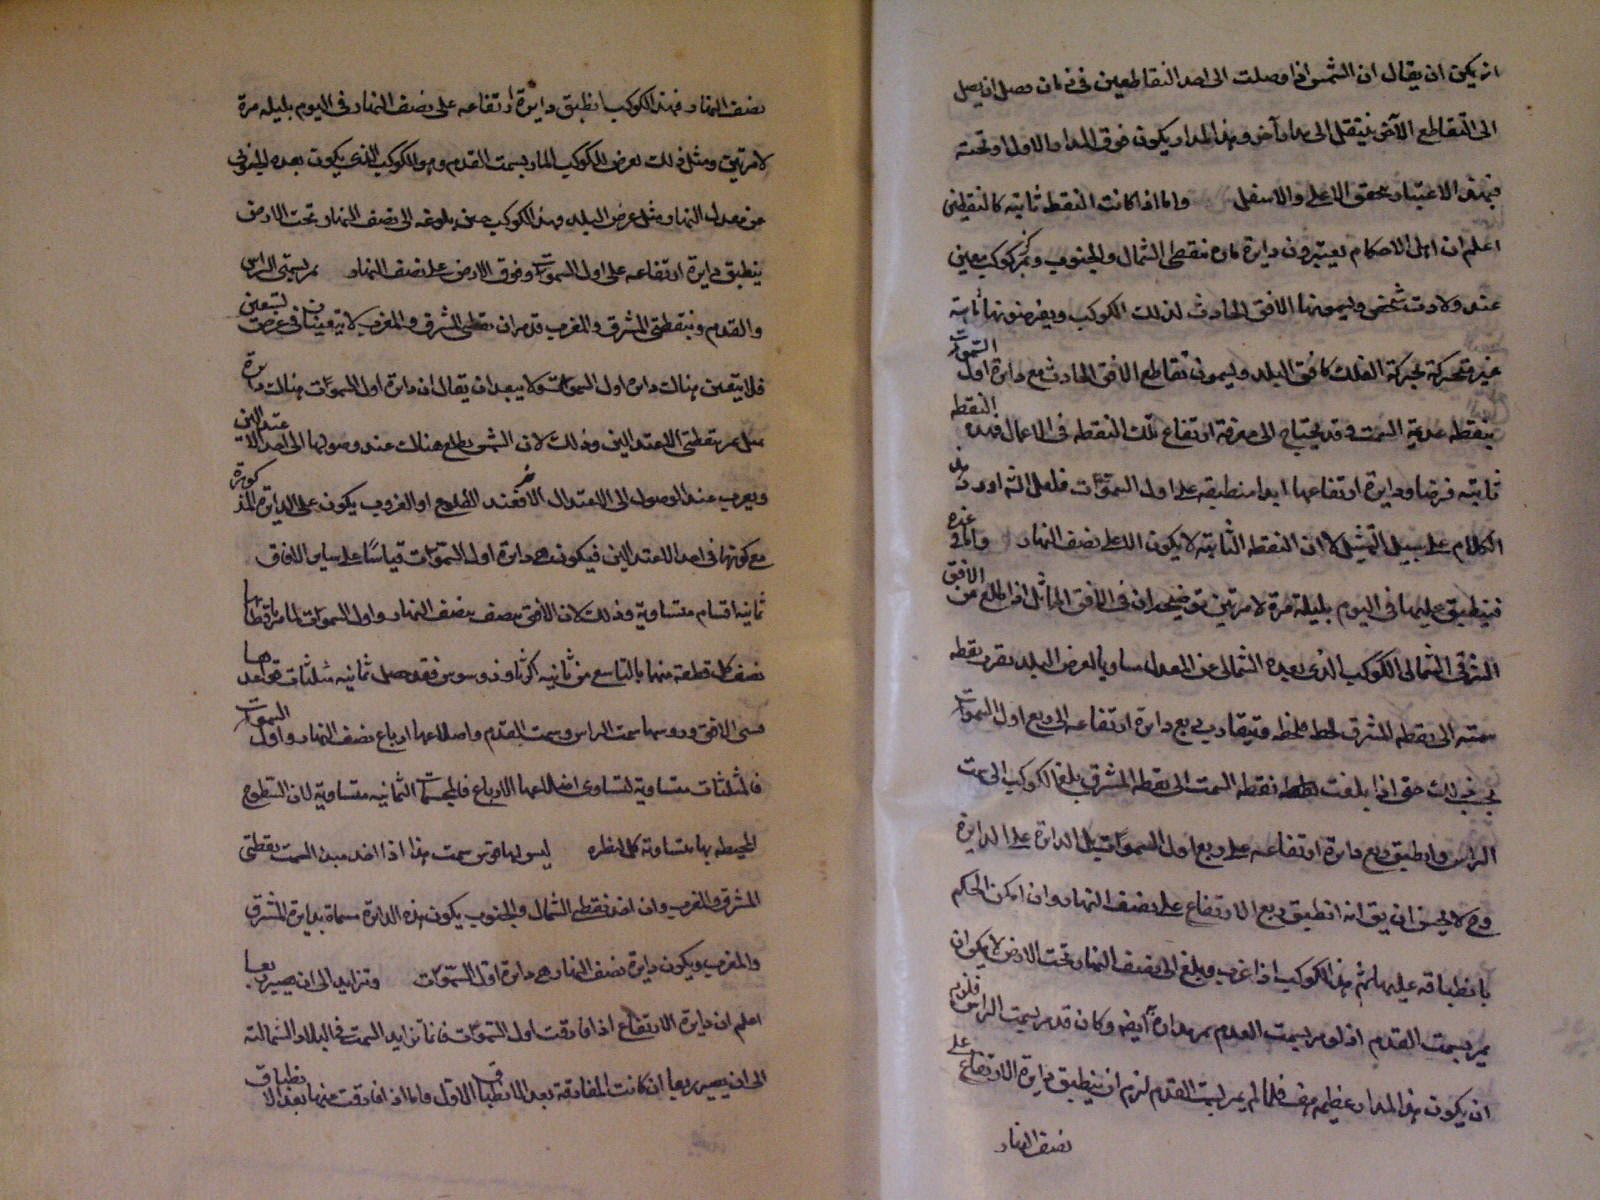 انه يمكن ان يقال ان الشمس اذا وصلت الى احد التقاطعين فى زمان وصل ان يصل
الى التقاطع الآخر ينتقل الى مدار آخر وهذا المدار يكون فوق المدار الاول او تحته
فبهذا الاعتبار تحقق الاعلى والاسفل واما اذا كانت النقطة ثابته كالنقطتين
اعلم ان اهل الاحكام يعتبرون دايرة ماره بنقطتى الشمال والجنوب وبمركز كوكب معين
عند ولادت شخص ويسمونها الافق الحادث لذلك الكوكب ويفرضونها ثابتة
غير متحركة بحركة الفلك كافق البلد ويسمون تقاطع الافق الحادث مع دايرة اول السموت
بنقطه عديمة السمت وقد يحتاج الى معرفة ارتفاع تلك النقطه فى الاعمال فهذه النقطه
ثابته فرضا ودايرة ارتفاعها ابدا منطبقه على اول السموت فلعل الشه اورد هذ
الكلام على سبيل التمثيل لا ان النقطه الثابته لا يكون الا على نصف النهار واما فى غيره
فينطبق عليها فى اليوم بليلة مرة لا مرتين توضيحه ان فى الافق المائل اذا طلع من الافق
الشرقى الشمالى الكوكب الذى بعده الشمالى عن المعدل مساويا لعرض البلد يقرب نقطه
سمته الى نقطه المشرق لحظه فلحظه فيتقارب ربع دايرة ارتفاعه الى ربع اول السموت
بحسب ذلك حتى اذا بلغت نقطه السمت الى نقطه المشرق بلغ الكوكب الى سمت
الراس وانطبق ربع دايرة ارتفاعه على ربع اول السموت بل الدايرة على الدايرة
وح لا يحسن ان يق انه انطبق ربع الارتفاع على نصف النهار وان امكن الحكم
بانطباقه عليها ثم هذا الكوكب اذا غرب وبلغ الى نصف النهار تحت الارض لا يمكن ان
يمر بسمت القدم اذ لو مر بسمت القدم بمداره ايضه وكان قد مر بسمت الراس فلزم
ان يكون هذا المدار عظيمه هف فلما لم يمر بسمت القدم لزم ان ينطبق دايرة الارتفاع على
نصف النهار
نصف النهار فهذا الكوكب انطبق دايرة ارتفاعه على نصف النهار فى اليوم بليله مرة
لا مرتين ومثل ذلك يعرض للكوكب المار بسمت القدم وهو الكوكب الذى يكون بعده الجنوبى
عن معدل النهار مثل عرض البلد وهذا الكوكب حين بلوغه الى نصف النهار تحت الارض
ينطبق دايرة ارتفاعه على اول السموت وفوق الارض على نصف النهار تمر بسمتى الراس
والقدم وبنقطتى المشرق والمغرب قد مر ان نقطتى المشرق والمغرب لا يتعينان فى عرض تسعين
فلا يتعين هنالك دايره اول السموت ولا يبعد ان يقال ان دايرة اول السموت هنالك دايرة
تمر بنقطتى الاعتدالين وذلك لان الشمس يطلع هنالك عند وصولها الى احد الاعتدالين
ويغرب عند الوصول الى الاعتدال الآخر فعند الطلوع او الغروب يكون على الدايرة المذكورة
مع كونها فى احد الاعتدالين فيكون هى دايرة اول السموت قياسًا على ساير الآفاق
ثمانيه اقسام متساوية وذلك لان الافق ينصف بنصف النهار واول السموت
نصف كل قطعة منها بالتاسع من ثانيه اكرثاوذوسيوس فقد حصل ثمانيه مثلثات قواعدها
قسى الافق ورؤسها سمت الراس وسمت القدم واضلاعها ارباع نصف النهار واول السموت
فالمثلثات متساوية لتساوى اضلاعها الارباع فالمجسمات الثمانيه متساوية لان السطوح
المحيطه بها متساوية كل لنظره ليس لها قوس سمت هذا اذا اخذ مبدا السمت نقطتى
المشرق والمغرب وان اخذ نقطتى الشمال والجنوب يكون هذه الدايرة مسماة بدايرة المشرق
والمغرب ويكون دايرة نصف النهار هى دايرة اول السموت وتزايد الى ان يصير ربعا
اعلم ان دايرة الارتفاع اذا فارقت اول السموت فانما تزايد السمت فى البلاد الشمالية
الى ان يصير ربعا ان كانت المفارقة بعد الانطباق الاول واما اذا فارقت عنها بعد الانطباق